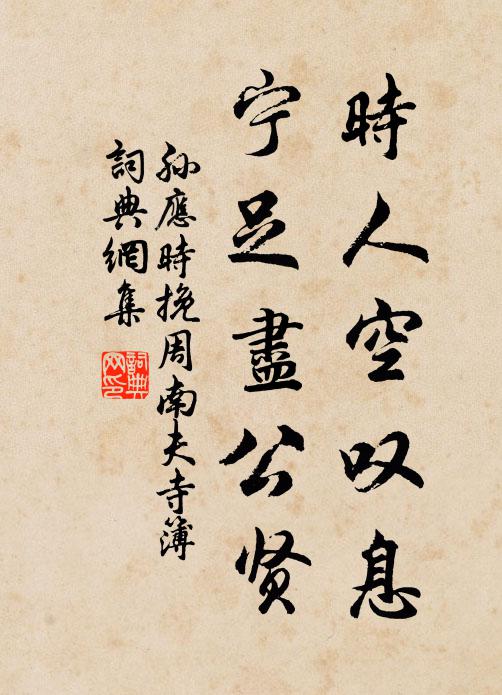 時人空叹息
宁足盡公贤
孙應時挽周南夫寺簿
詞典網集
詞典
网印